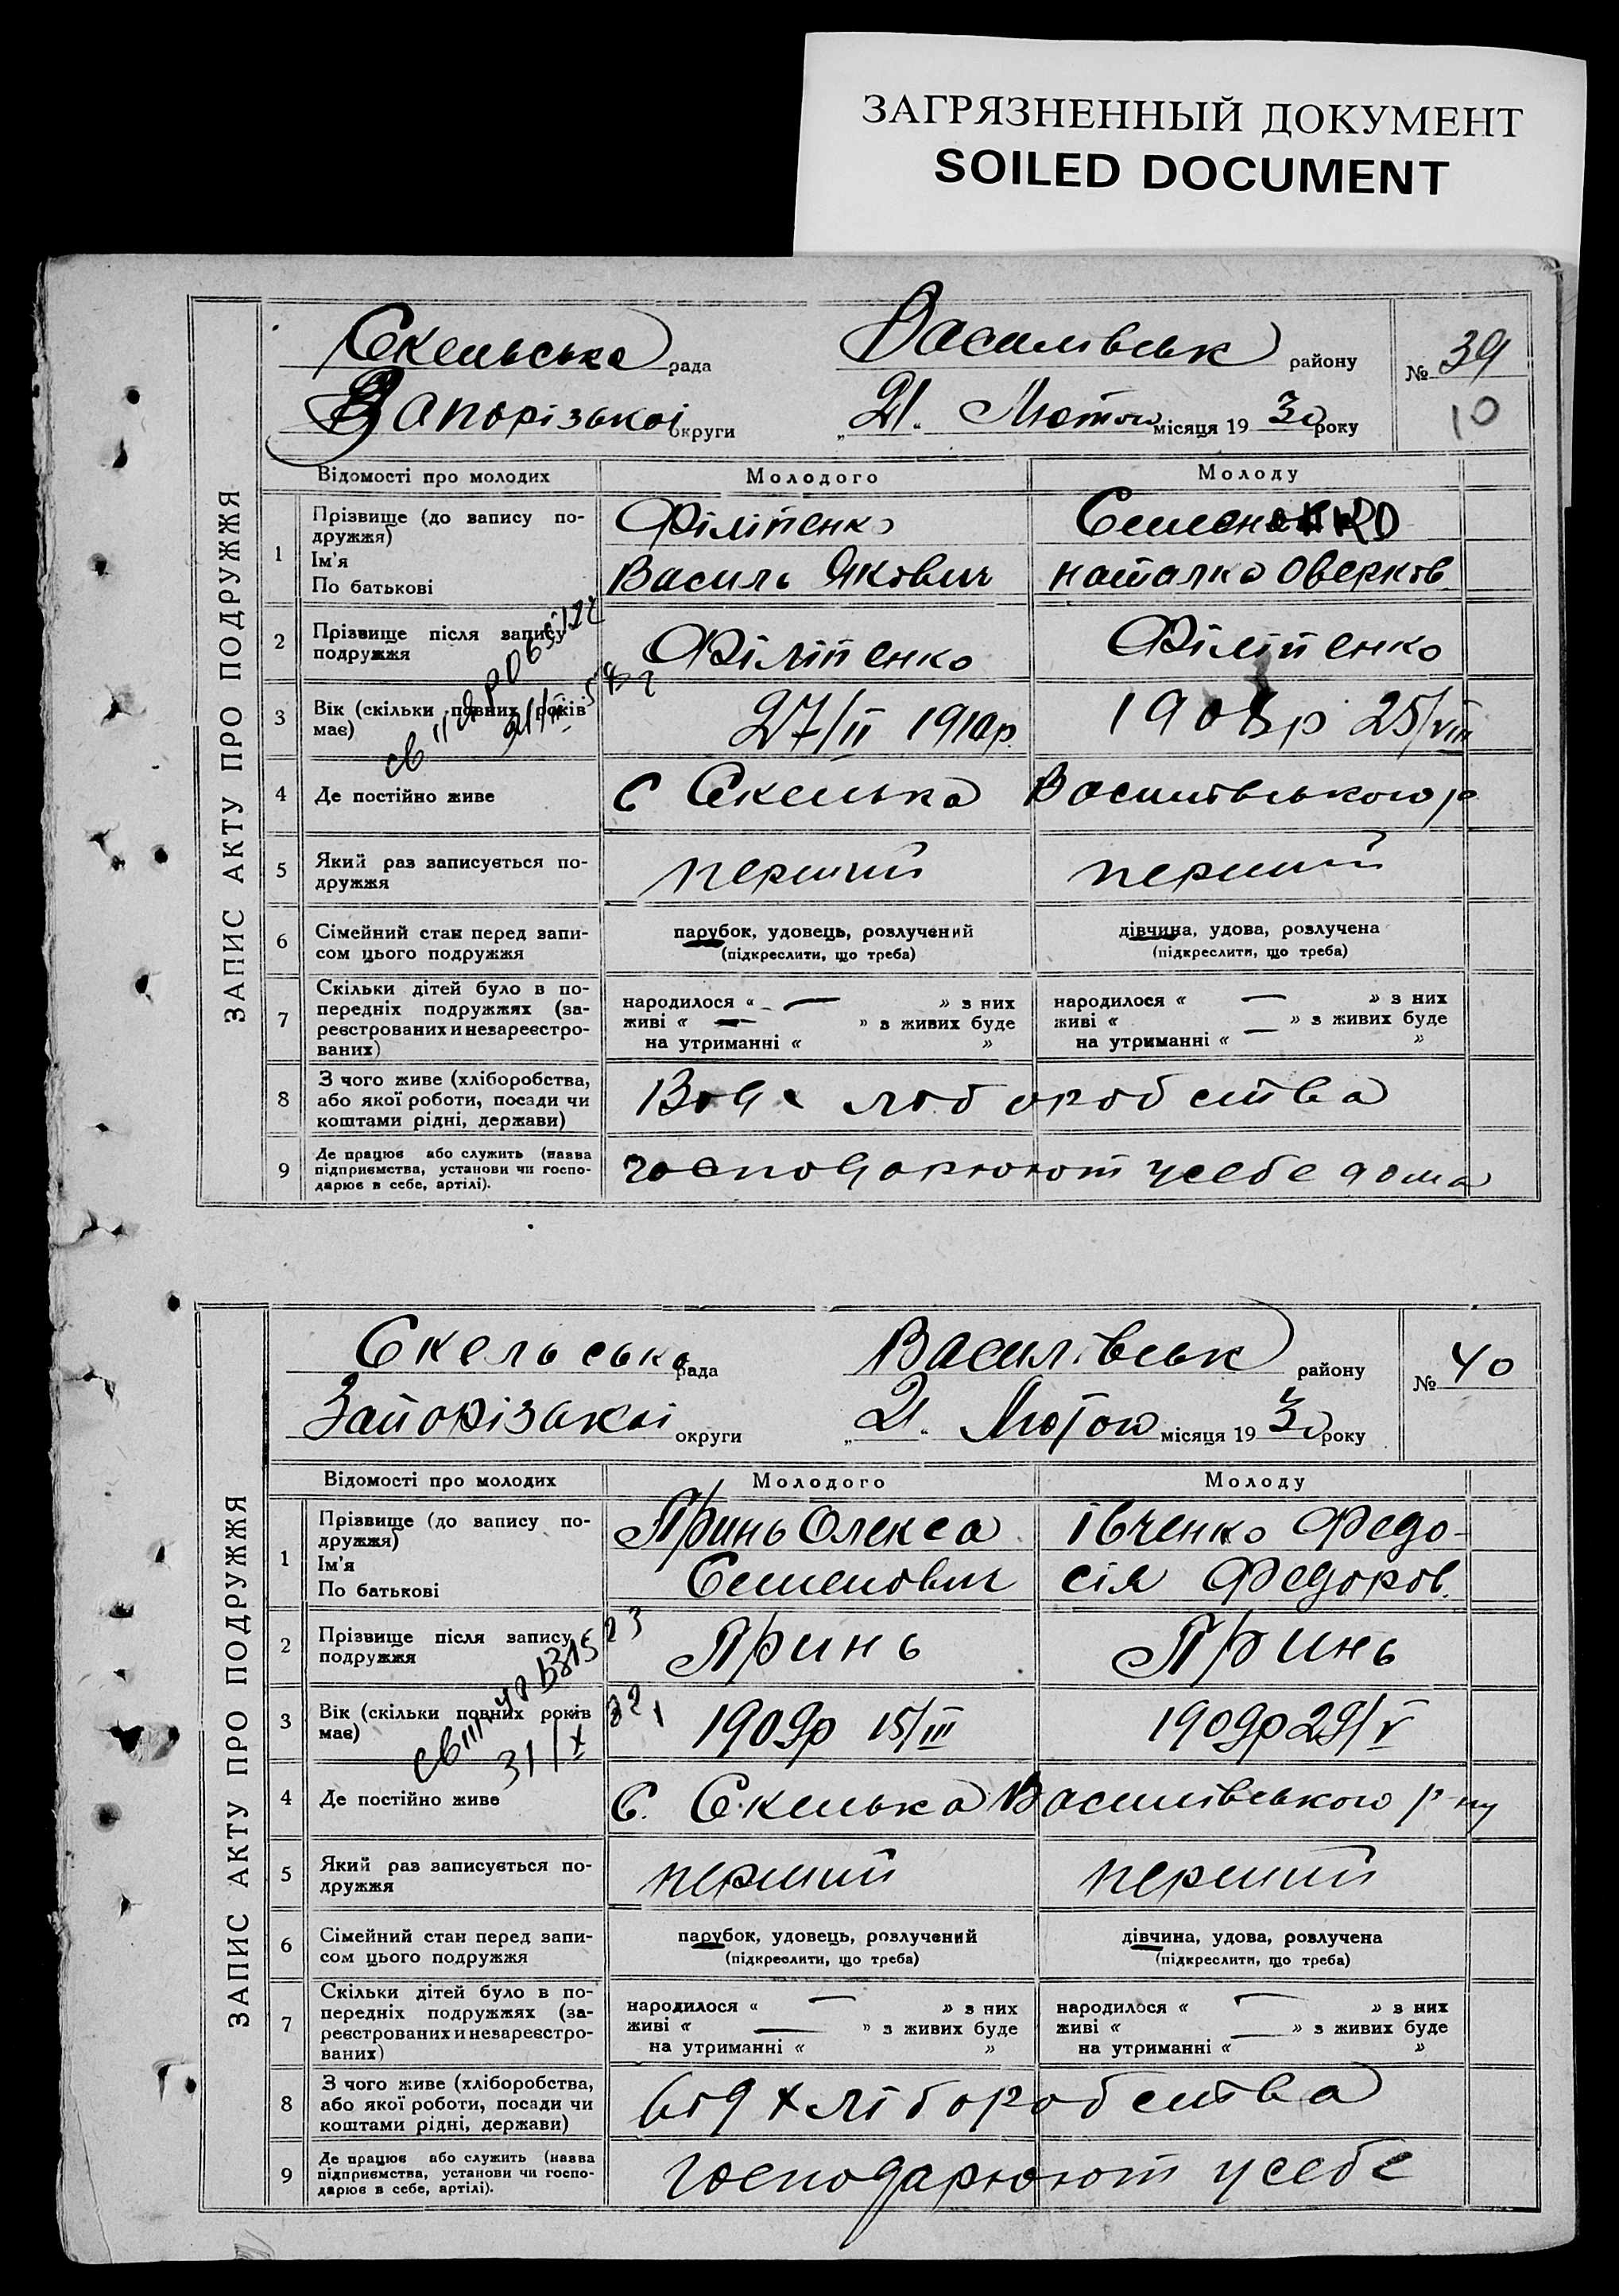 ЗАГРЯЗНЕННЫЙ ДОКУМЕНТ
SOILED DOCUMENT
ЗАПИС АКТУ ПРО ПОДРУЖЖЯ
Скельська рада Василівськ району № 39
Запорізькоі округи „21“ Лютого місяця 1930 року 10
Відомості про молодих Молодого Молоду
1 Прізвище (до запису по-
дружжя)
Ім'я
По батькові
Філіпенко
Василь Якович
Семененко
Наталка Оверков.
2 Прізвище після запису
подружжя
Філіпенко Філіпенко
3 Вік (скільки повних років
має)
27/II 1910р. 25/VIII
4 Де постійно живе С Скелька Василівського р
5 Який раз записується по-
дружжя
перший перший
6 Сімейний стан перед запи-
сом цього подружжя
парубок, удовець, розлучений
(підкреслити, що треба)
дівчина, удова, розлучена
(підкреслити, що треба)
7 Скільки дітей було в по-
передніх подружжях (за-
реєстрованих и незареєстро-
ваних)
народилося « — » з них
живі « — » з живих буде
на утриманні « »
народилося « — » з них
живі « — » з живих буде
на утриманні « »
8 З чого живе (хліборобства,
або якої роботи, посади чи
коштами рідні, держави)
Від х ліборобства
9 Де працює або служить (назва
підприємства, установи чи госпо-
дарює в себе, артілі).
господарюют у себе дома
ЗАПИС АКТУ ПРО ПОДРУЖЖЯ
Скельська рада Василівськ району № 40
Запорізькоі округи „21“ Лютого місяця 1930 року
Відомості про молодих Молодого Молоду
1 Прізвище (до запису по-
дружжя)
Ім'я
По батькові
Принь Олекса
Семенович
Івченко Федо-
сія Федоров.
2 Прізвище після запису
подружжя
Принь Принь
3 Вік (скільки повних років
має)
31/X
1909р 15/III 1909р 29/V
4 Де постійно живе С. Скелька Василівського р-ну
5 Який раз записується по-
дружжя
перший перший
6 Сімейний стан перед запи-
сом цього подружжя
парубок, удовець, розлучений
(підкреслити, що треба)
дівчина, удова, розлучена
(підкреслити, що треба)
7 Скільки дітей було в по-
передніх подружжях (за-
реєстрованих и незареєстро-
ваних)
народилося « — » з них
живі « — » з живих буде
на утриманні « »
народилося « — » з них
живі « — » з живих буде
на утриманні « »
8 З чого живе (хліборобства,
або якої роботи, посади чи
коштами рідні, держави)
від хліборобства
9 Де працює або служить (назва
підприємства, установи чи госпо-
дарює в себе, артілі).
господарюют у себе